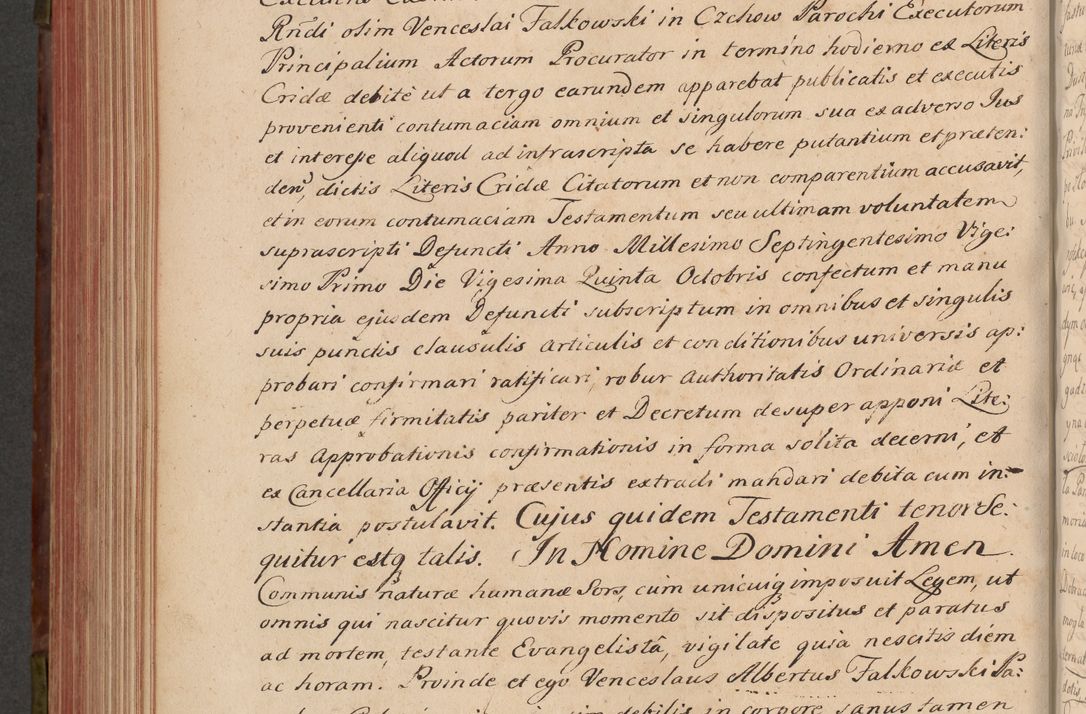 Rndi olim Venceslai Falkowski in Czchow Parochi Executorum
Principalium Actorum Procurator in termino hodierno ex Literis
Cridæ debitè ut a tergo earundem apparebat publicatis et executis
provenienti contumaciam omnium et singulorum sua ex adverso Jus
et interesse aliquod ad infrascripta se habere putantium et præten:
den, dictis Literis Cridæ Citatorum et non comparentium accusavit,
et in eorum contumaciam Testamentum seu ultimam voluntatem
suprascripti Defuncti Anno Millesimo Septingentesimo Vige:
simo Primo Die Vigesima Quinta Octobris confectum et manu
propria ejusdem Defuncti subscriptum in omnibus et singulis
suis punctis clausulis articulis et conditionibus universis ap:
probari confirmari ratificari, robur authoritatis Ordinariæ et
perpetuæ firmitatis pariter et Decretum desuper apponi Lite:
ras Approbationis confirmationis in forma solita decerni, et
ex Cancellaria Officij præsentis extradi mandari debita cum in:
stantia postulavit. Cujus quidem Testamenti tenor Se:
quitur estq talis. In Nomine Domini Amen.
Communis naturæ humanæ Sors, cum unicuiq imposuit Legem, ut
omnis qui nascitur quovis momento sit dispositus et paratus
ad mortem, testante Evangelistâ, vigilate quia nescitis diem
ac horam. Proinde et ego Venceslaus Albertus Falkowski Pa:
debilis in corpore sanus tamen